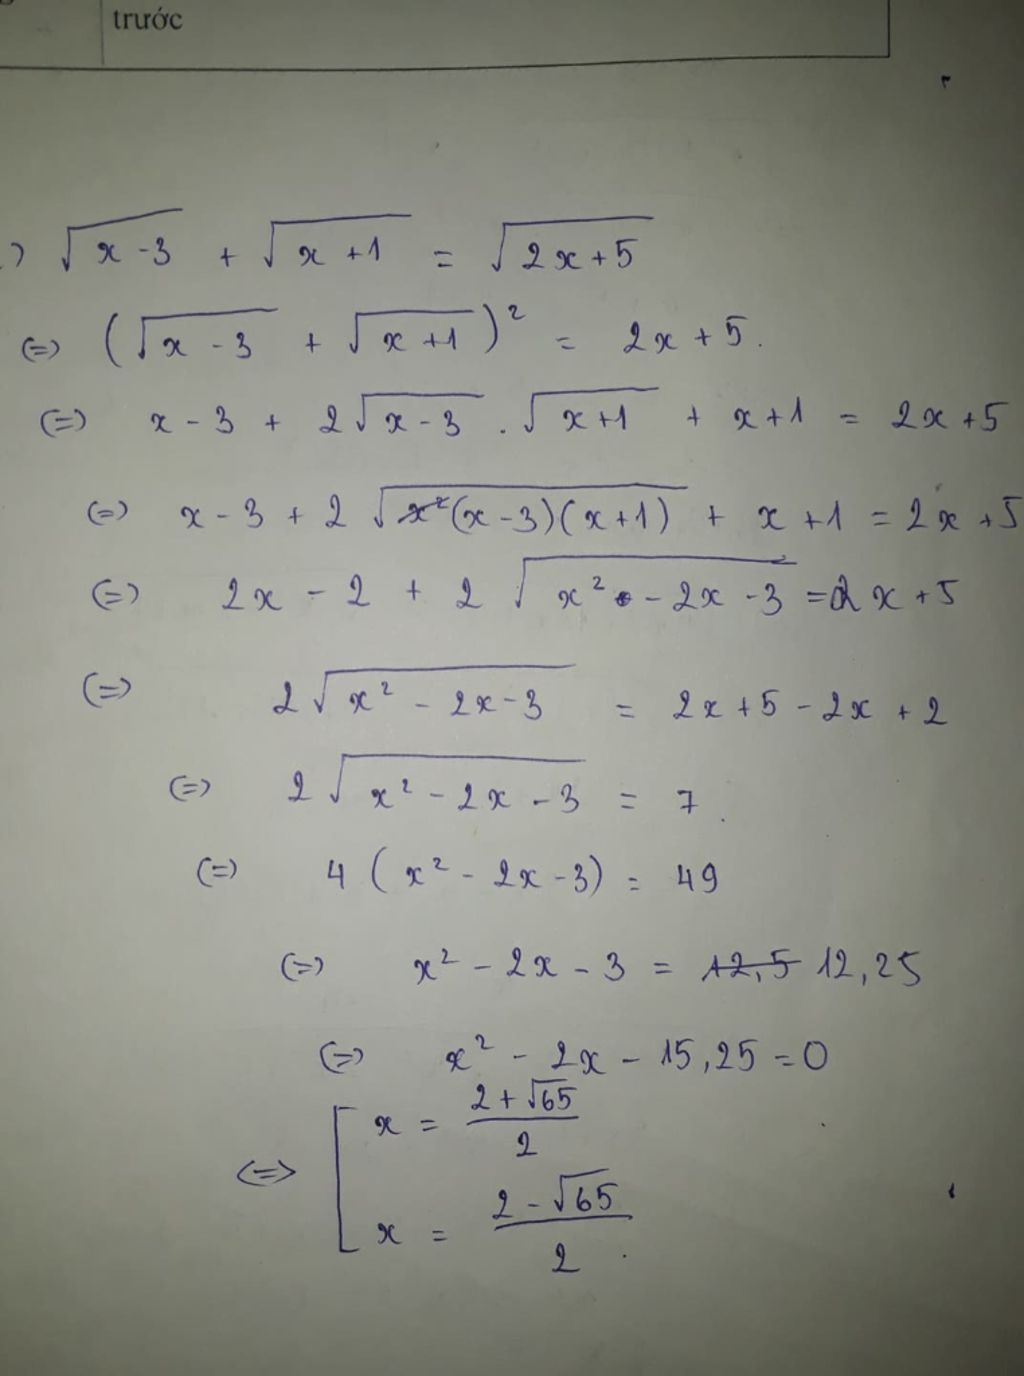 trước
.) √(x-3) + √(x+1) = √(2x+5)
(=) (√(x-3) + √(x+1))² = 2x+5.
(=) x-3 + 2√(x-3) . √(x+1) + x+1 = 2x+5
(=) x-3+2 √((x-3)(x+1)) + x+1 = 2x+5
(=) 2x - 2 + 2 √(x² - 2x - 3) = 2x+5
(=) 2√(x² - 2x - 3) = 2x+5-2x+2
(=) 2√(x² - 2x - 3) = 7.
(=) 4(x² - 2x - 3) = 49
(=) x² - 2x - 3 = 12,5 12,25
(=) x² - 2x - 15,25 = 0
(=) [ x = (2+√65)/2
x = (2-√65)/2.